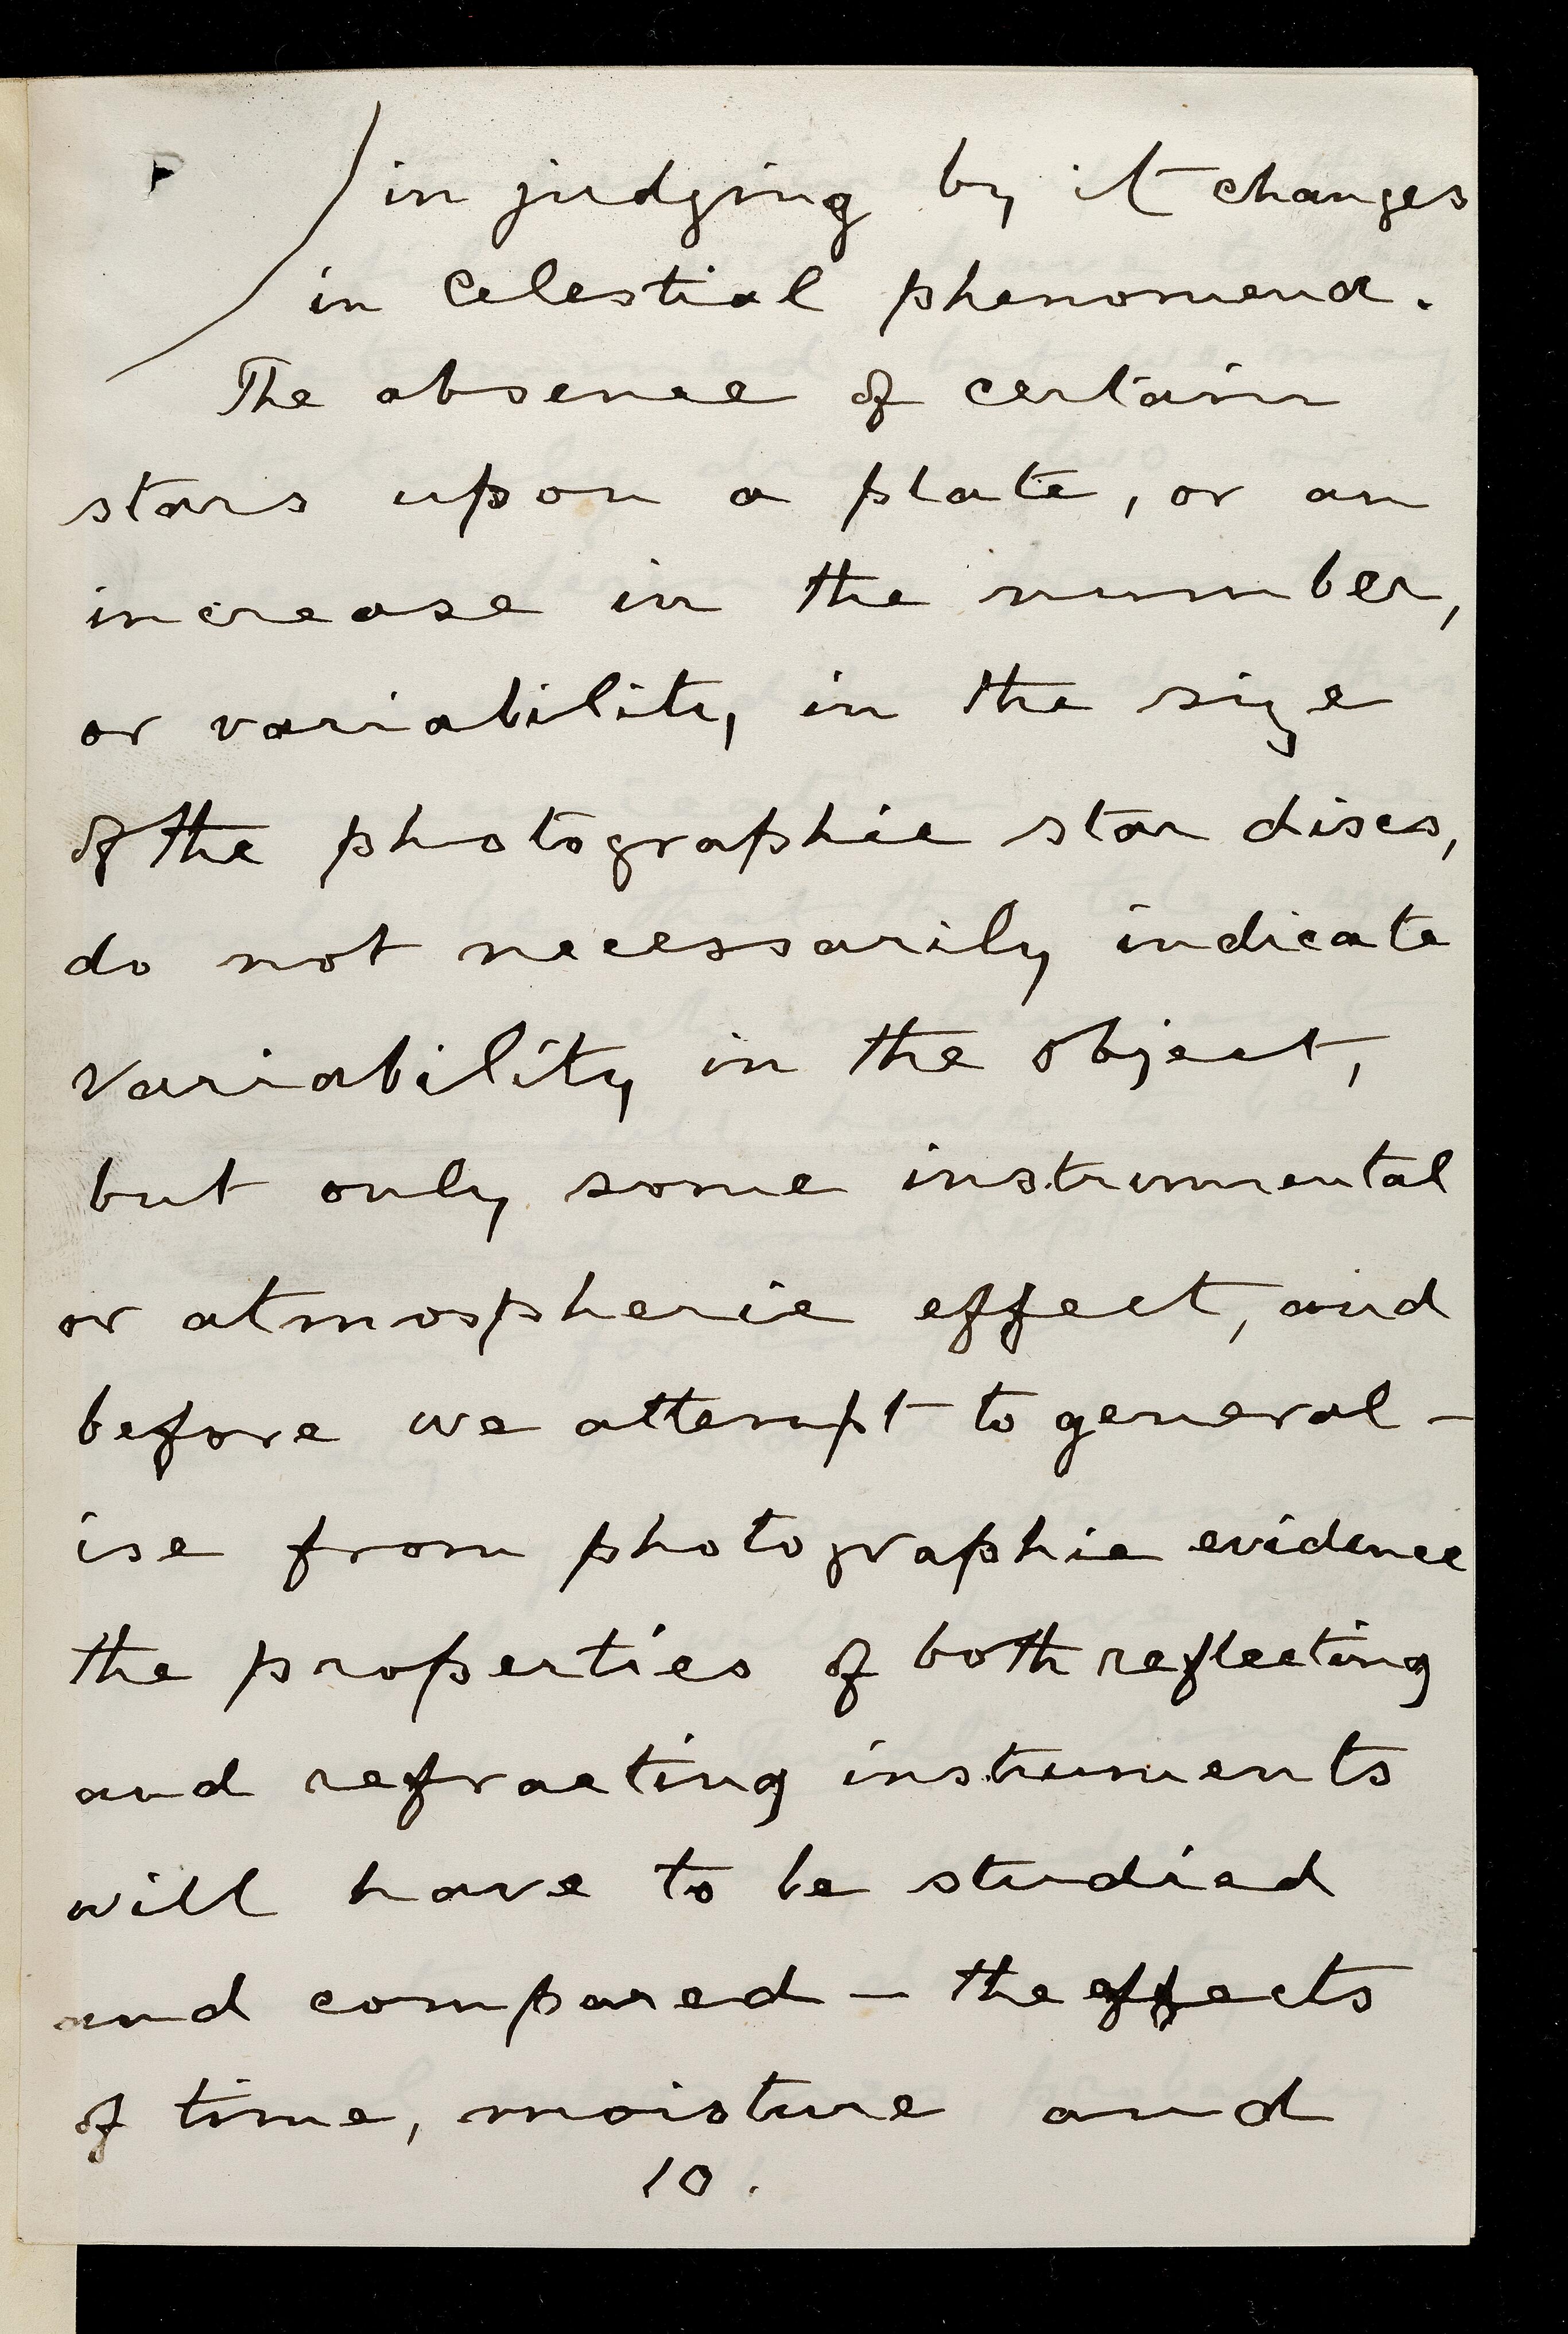 in judging by it changes
in celestial phenomena.
The absence of certain
stars upon a plate, or an
increase in the number,
or variability in the size
of the photographic star discs,
do not necessarily indicate
variability in the object,
but only some instrumental
or atmospheric effect, and
before we attempt to general-
ise from photographic evidence
the properties of both reflecting
and refracting instruments
will have to be studied
and compared — the effects
of time, moisture and
10.